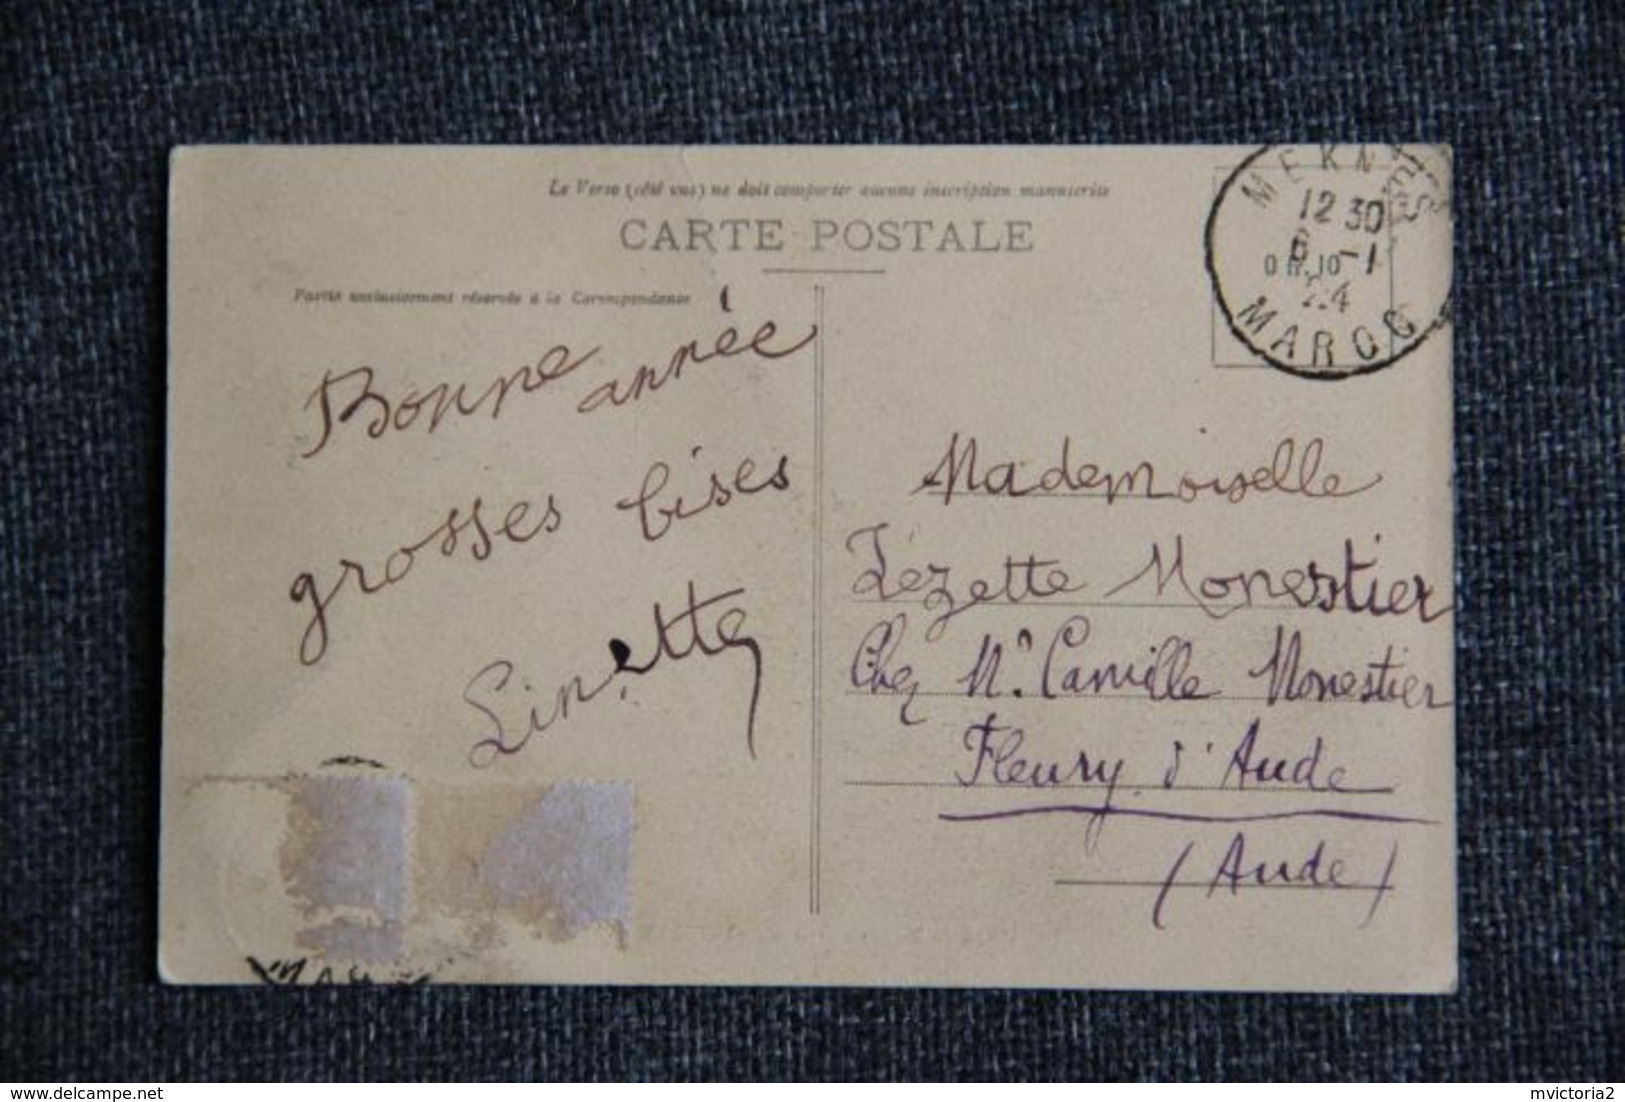 Le Verso (côté vue) ne doit comporter aucune inscription manuscrite
CARTE POSTALE
Partie exclusivement réservée à la Correspondance
MEKNES
12 30
6 -1
24
MAROC
0 fr. 10
Bonne année
grosses bises
Linette
Mademoiselle
Zézette Monestier
Chez Mr Camille Monestier
Fleury d'Aude
(Aude)
delcampe.net
mvictoria2